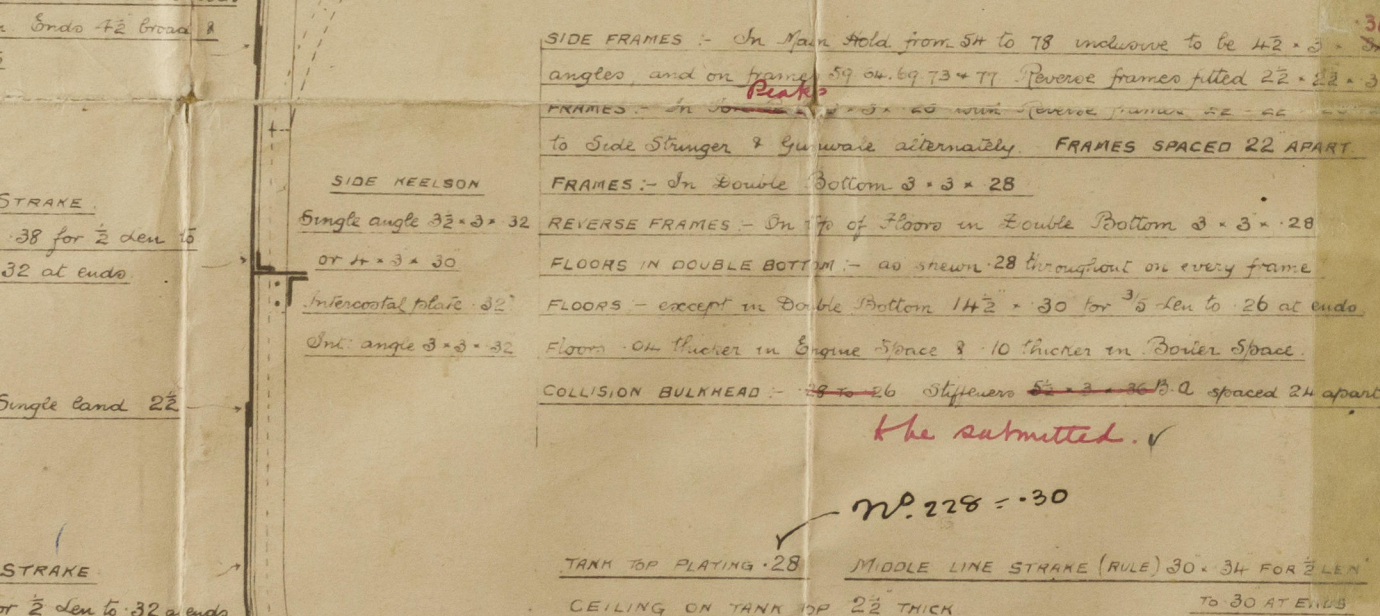 Ends 4½ broad &
STRAKE
.38 for ½ Len to
32 at ends
Single land 2½
STRAKE
or ½ Len to .32 a ends
SIDE KEELSON
Single angle 3½ × 3 × 32
or 4 × 3 × 30
Intercostal plate .32
Int: angle 3 × 3 × .32
SIDE FRAMES :- In Main Hold from 54 to 78 inclusive to be 4½ × 3 ×
angles, and on frames 59. 64. 69 73 & 77 Reverse frames fitted 2½ × 2½ × 3
Peaks
FRAMES :- In 3 × 3 × 26 with Reverse frames
to Side Stringer & Gunwale alternately. FRAMES SPACED 22 APART.
FRAMES :- In Double Bottom 3 × 3 × .28
REVERSE FRAMES :- On Top of Floors in Double Bottom 3 × 3 × .28
FLOORS IN DOUBLE BOTTOM :- as shewn .28 throughout on every frame
FLOORS - except in Double Bottom 14½ × .30 for 3/5 Len to .26 at ends
Floors .04 thicker in Engine Space & .10 thicker in Boiler Space.
COLLISION BULKHEAD :- 28 to 26 Stiffeners 5½ × 3 × 36 B.A spaced 24 apart
to be submitted. ✓
No. 228 = .30
TANK TOP PLATING .28
MIDDLE LINE STRAKE (RULE) 30 × 34 FOR ½ LEN
TO 30 AT ENDS
CEILING ON TANK TOP 2½ THICK